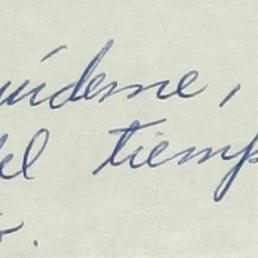 uídeme,
del tiemp
o.